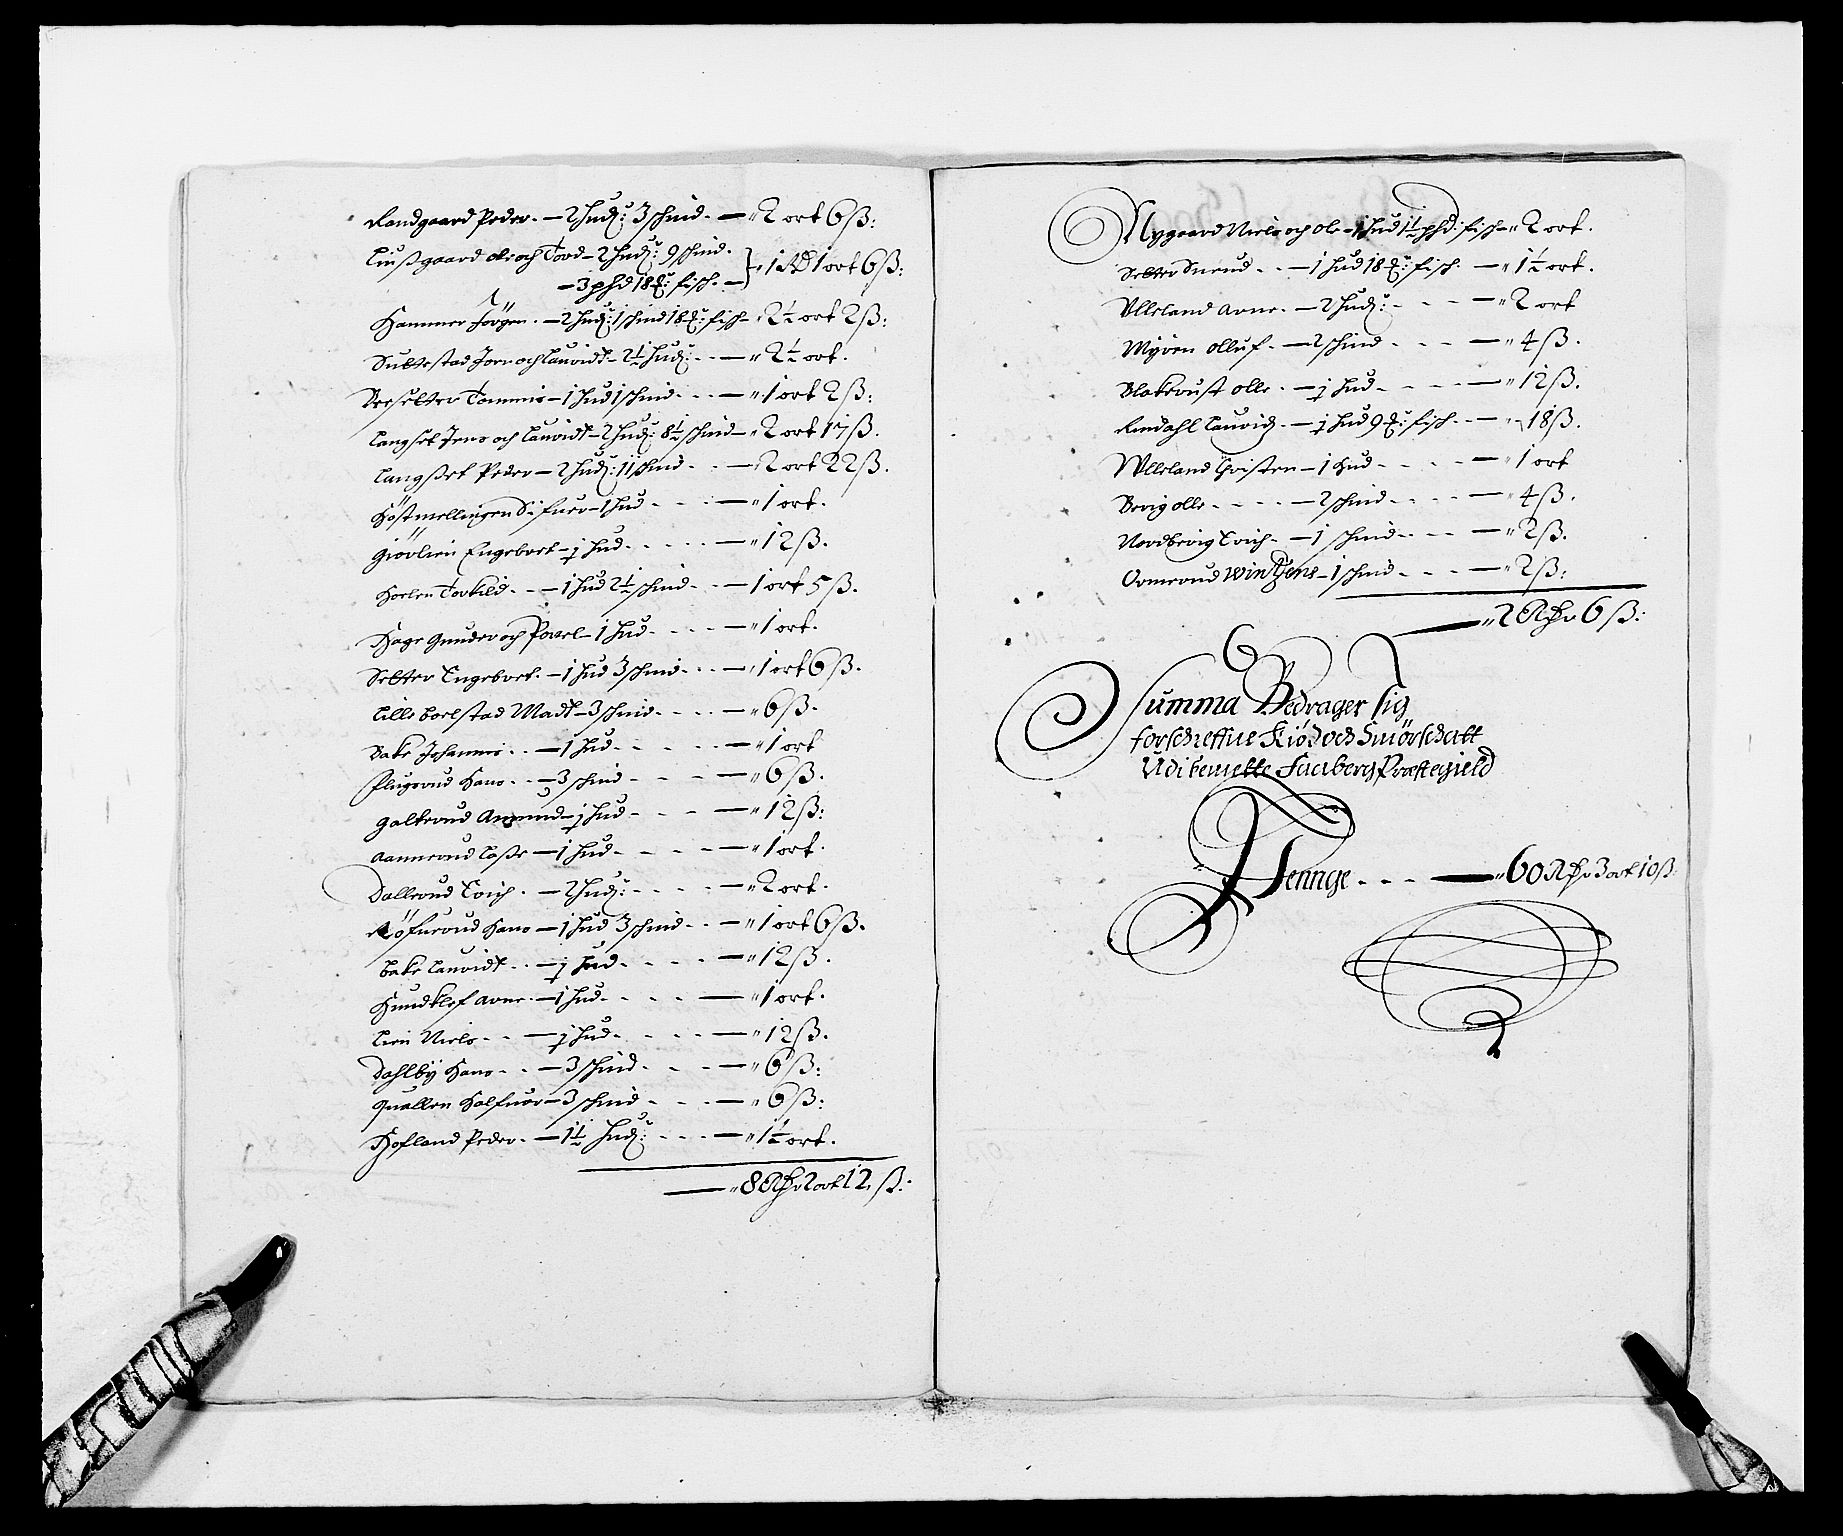 Randgaard Peder. — 2 huder 3 schind — 2 ort 6 ß:
Liusgaard ole och Tord — 2 huder 9 schind.
— 3 phd 18 ℔: fisch — 1 Rd 1 ort 6 ß:
Hammer Jörgen. — 2 huder 1 schind 18 ℔: fisch — 2½ ort 2 ß:
Sultestad Jern och Lauridt — 2½ huder — 2½ ort.
Tommis — 1 hud 1 schind — 1 ort 2 ß:
Langset Jens och Lauridt — 2 huder 8½ schind — 2 ort 17 ß.
Langset Peder — 2 huder 11 schind — 2 ort 22 ß.
Höstmellingen Sifuer — 1 hud — 1 ort.
Giörlien Engebret — ½ hud — 12 ß.
Hoelen Torkild — 1 hud 2½ schind — 1 ort 5 ß.
Hage Gunder och Povel — 1 hud — 1 ort.
Selter Engebret — 1 hud 3 schind — 1 ort 6 ß.
Lille boelstad Madt — 3 schind — 6 ß.
Bake Johannis — 1 hud — 1 ort
Plugerud Hans — 3 schind — 6 ß.
Galterud Amund — ½ hud — 12 ß:
Aannerud Lasse — 1 hud — 1 ort.
Dallerud Erich — 2 huder — 2 ort.
Röfuerud Hans — 1 hud 3 schind — 1 ort 6 ß.
Bake Lauridt — ½ hud — 12 ß.
Hundklef Arne — 1 hud — 1 ort.
Lien Niels — ½ hud — 12 ß.
Dahlby Hans — 3 schind — 6 ß:
Quallen Halfuor — 3 schind — 6 ß:
Hofland Peder — 1½ huder — 1½ ort.
— 8 Rdr 2 ort 12 ß:
Nygaard Niels och ole — 1 hud 1½ phd: fisch — 2 ort.
Selter Suend — 1 hud 18 ℔: fisch — 1½ ort.
Ulleland Arne — 2 huder — 2 ort
Myren olluf — 2 schind — 4 ß.
Blakerust olle — ½ hud — 12 ß.
Rindahl Lauridz — ½ hud 9 ℔: fisch — 18 ß.
Ulleland Christen — 1 hud — 1 ort
Berig olle — 2 schind — 4 ß.
Nordberig Erich — 1 schind — 2 ß.
Ormerud Wintzens — 1 schind — 2 ß:
— 2 Rdr 6 ß:
Summa Bedrager sig
forschreffne Kiød och Smörschatt
Udi bemelte Faaberg Præstegield
Penge — 60 Rdr 3 ort 10 ß.